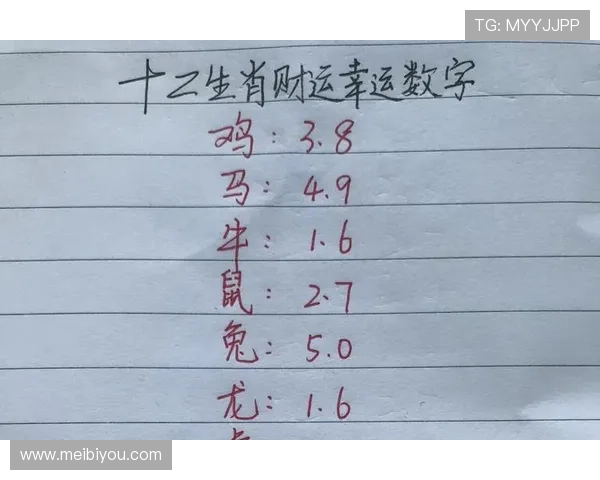 TG: MYYJJPP
十二生肖财运幸运数字
鸡: 3.8
马: 4.9
牛: 1.6
鼠: 2.7
兔: 5.0
龙: 1.6
www.meibiyou.com